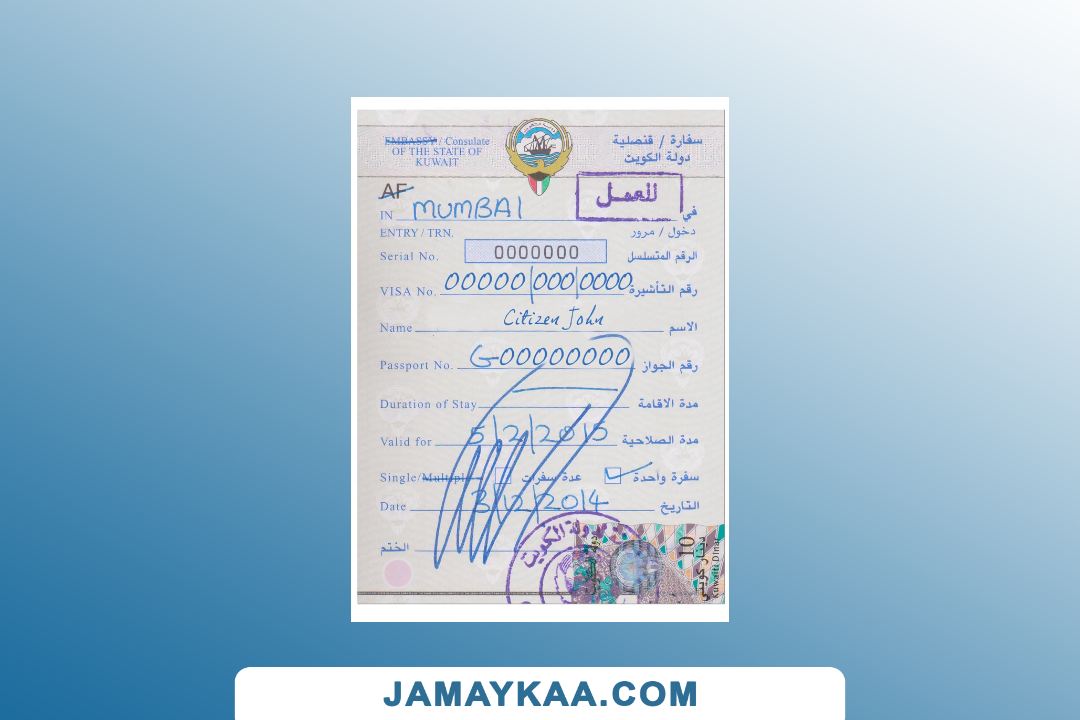 EMBASSY / Consulate سفارة / قنصلية
OF THE STATE OF دولة الكويت
KUWAIT
AF للعمل
IN MUMBAI في
ENTRY / TRN. دخول / مرور
Serial No. 0000000 الرقم المتسلسل
VISA No. 00000|000|0000 رقم التأشيرة
Name Citizen John الاسم
Passport No. G-00000000 رقم الجواز
Duration of Stay مدة الاقامة
Valid for 5/2/2015 مدة الصلاحية
Single/Multiple عدة سفرات سفرة واحدة
Date 3/12/2014 التاريخ
الختم
دولة الكويت
10
دينار كويتي
Kuwaiti Dinar
JAMAYKAA.COM